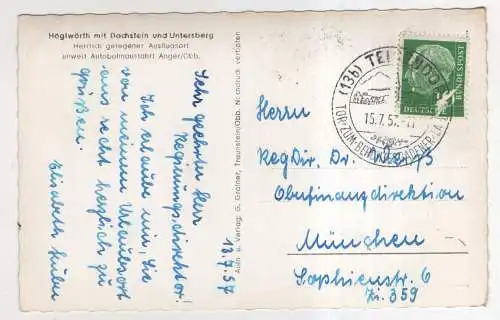 Höglwörth mit Dachstein und Untersberg
Herrlich gelegener Ausflugsort
unweit Autobahnausfahrt Anger/Obb.
13.7.57
Sehr geehrter Herr
Regierungsdirektor!
Ich erlaube mir, Sie
von meinem Urlaubsort
aus recht herzlich zu
grüßen.
Elisabeth Huber
Aufn. u. Verlag: G. Grainer, Traunstein/Obb. Nachdruck verboten
(13b) TEISENDORF
15.7.57
TOR ZUM BERCHTESGADENER LAND
DEUTSCHE
BUNDESPOST
Herrn
Reg Dir. Dr.
Oberfinanzdirektion
München
Sophienstr. 6
Zi. 359